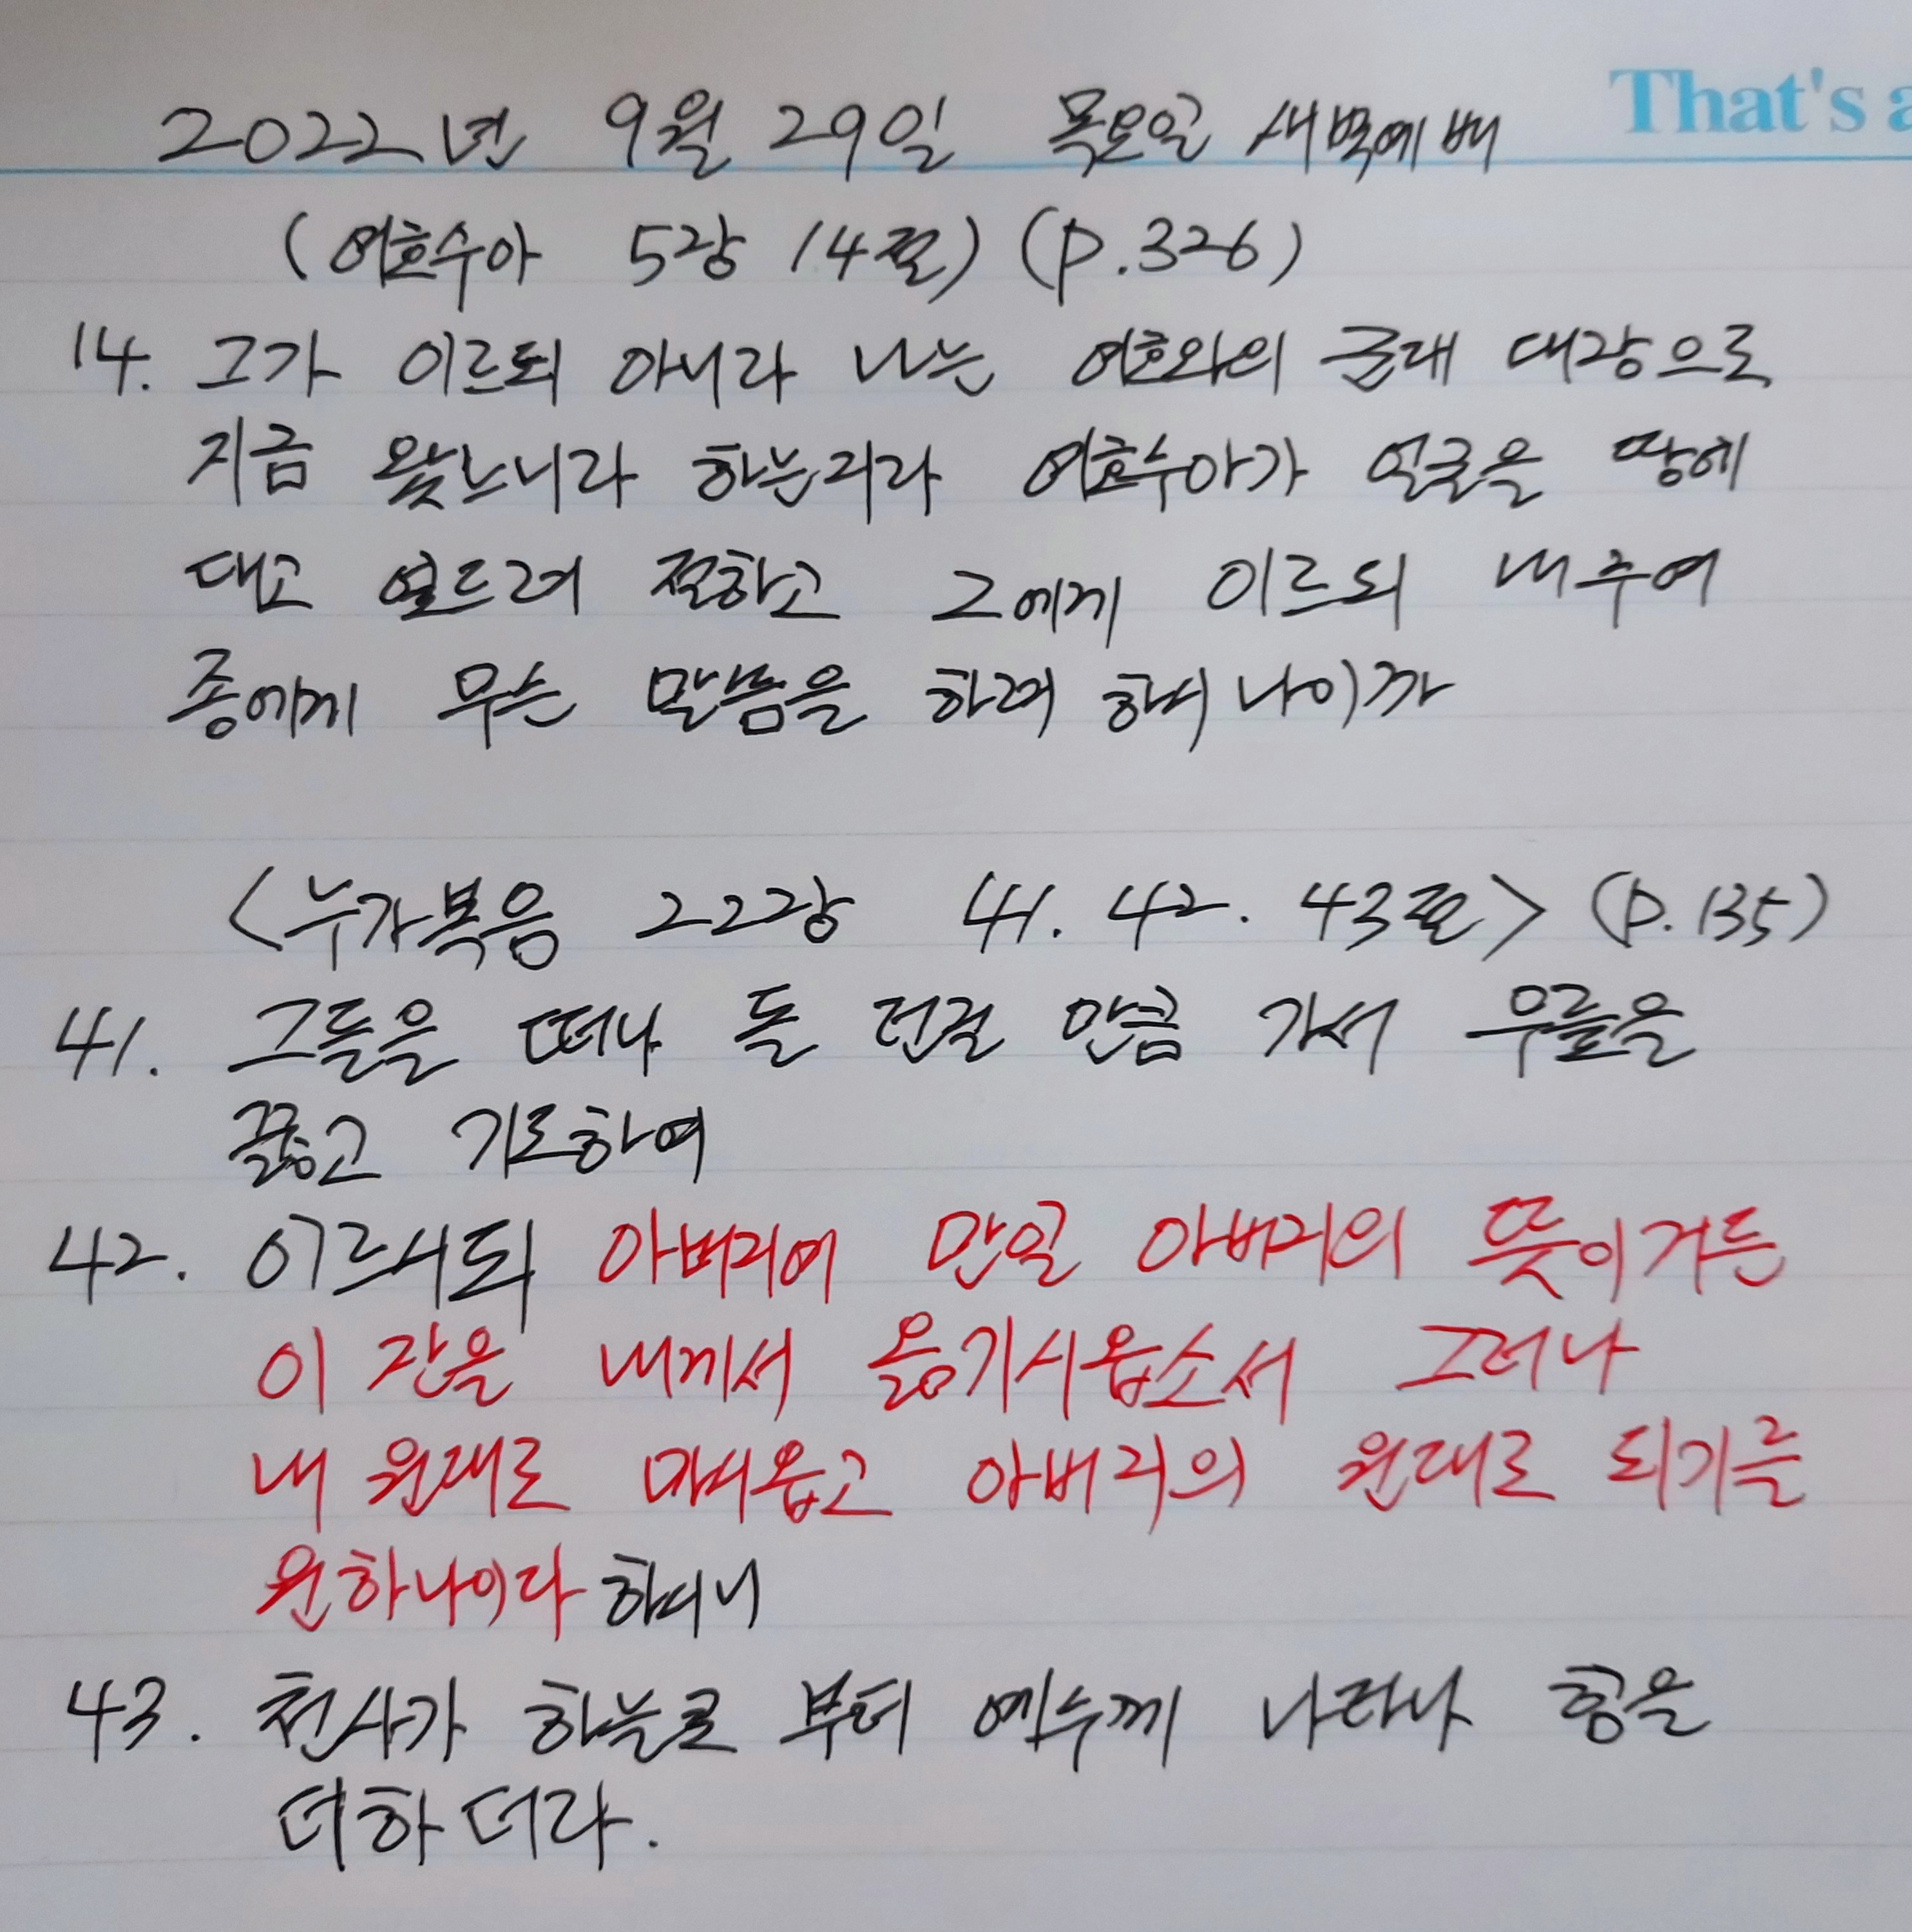 That's a
2022년 9월 29일 목요일 새벽예배
(여호수아 5장 14절) (P.326)
14. 그가 이르되 아니라 나는 여호와의 군대 대장으로
지금 왔느니라 하는지라 여호수아가 얼굴을 땅에
대고 엎드려 절하고 그에게 이르되 내 주여
종에게 무슨 말씀을 하려 하시나이까
<누가복음 22장 41. 42. 43절> (P.135)
41. 그들을 떠나 돌 던질 만큼 가서 무릎을
꿇고 기도하여
42. 이르시되 아버지여 만일 아버지의 뜻이거든
이 잔을 내게서 옮기시옵소서 그러나
내 원대로 마시옵고 아버지의 원대로 되기를
원하나이다 하시니
43. 천사가 하늘로 부터 예수께 나타나 힘을
더하더라.